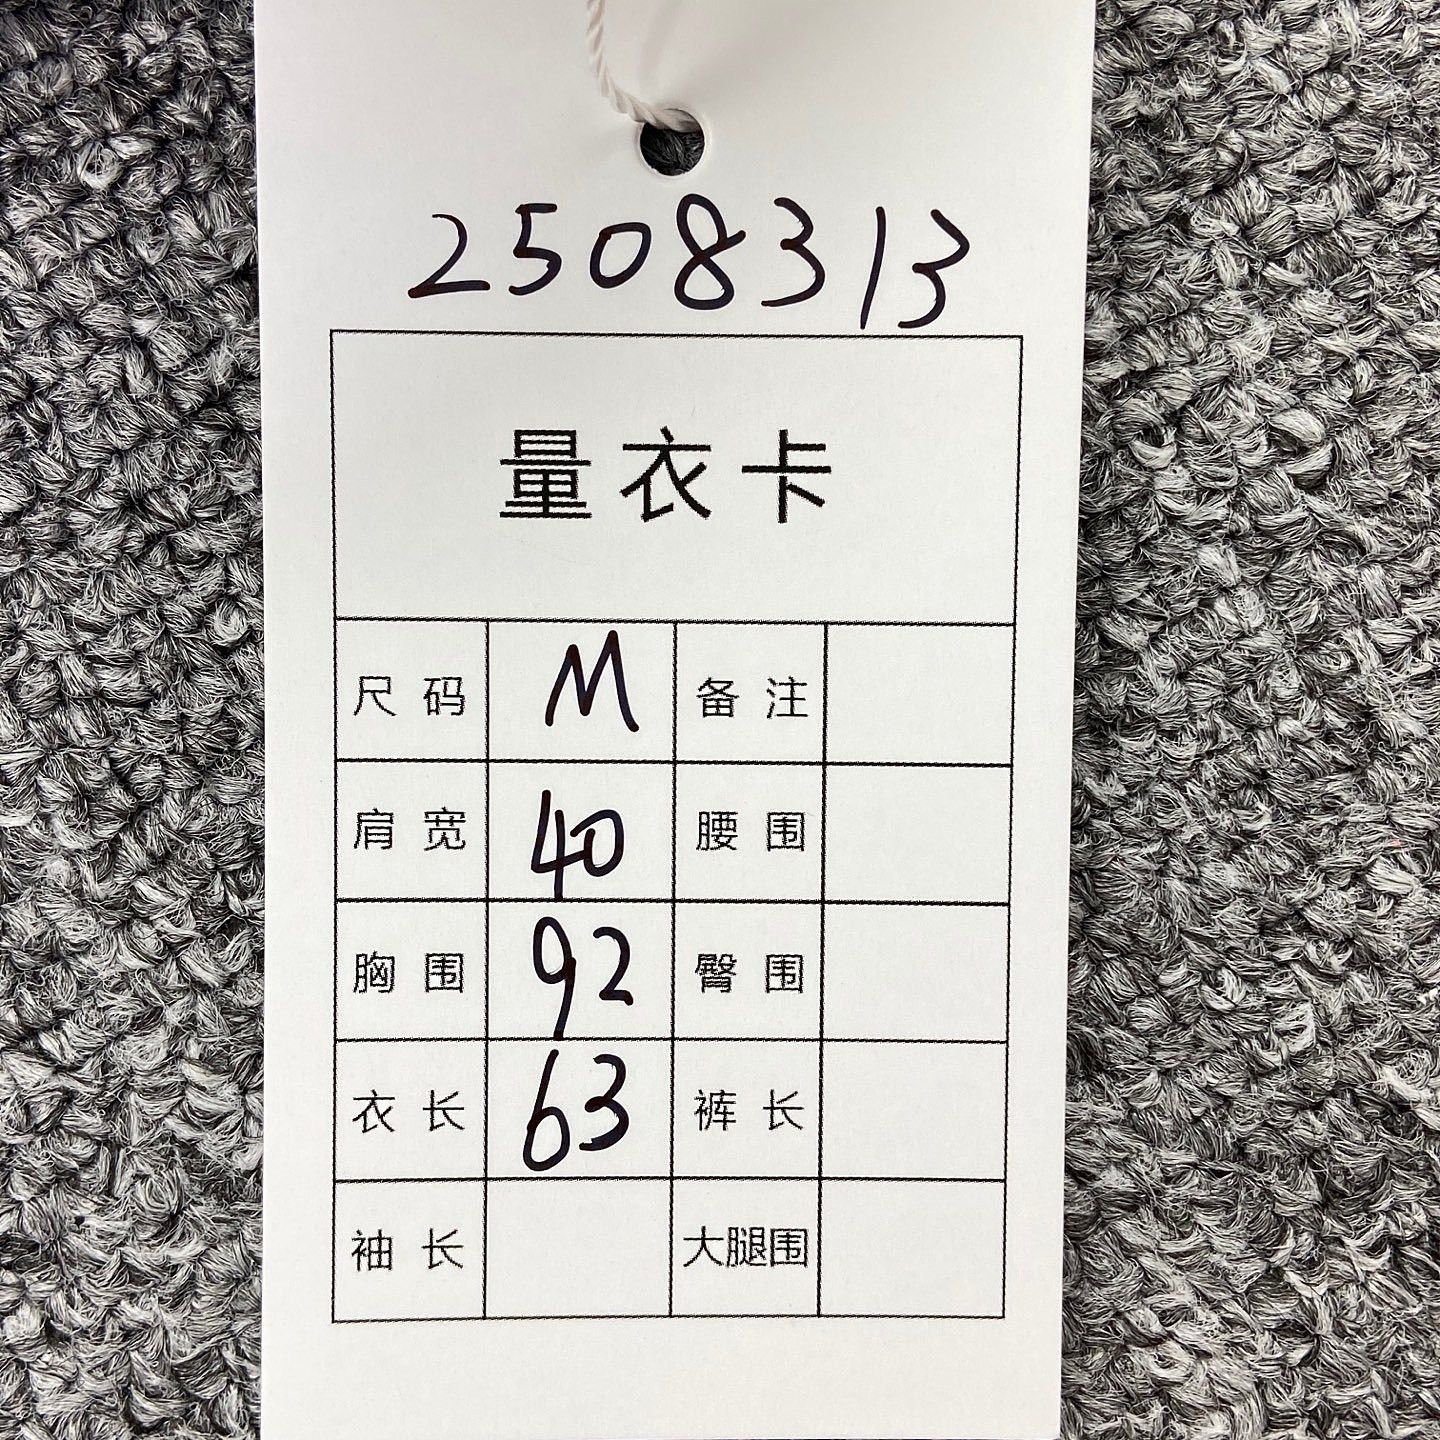 2508313
量衣卡
尺码 M 备注
肩宽 40 腰围
胸围 92 臀围
衣长 63 裤长
袖长 大腿围